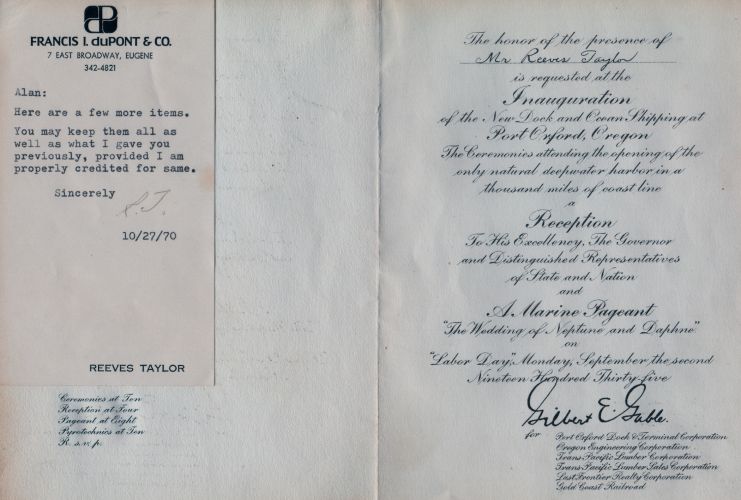 FRANCIS I. duPONT & CO.
7 EAST BROADWAY, EUGENE
342-4821
Alan:
Here are a few more items.
You may keep them all as
well as what I gave you
previously, provided I am
properly credited for same.
Sincerely
10/27/70
REEVES TAYLOR
Ceremonies at Ten
Reception at Four
Pageant at Eight
Pyrotechnics at Ten
R. s.v.p.
The honor of the presence of
Mr Reeves Taylor
is requested at the
Inauguration
of the New Dock and Ocean Shipping at
Port Orford, Oregon
The Ceremonies attending the opening of the
only natural deepwater harbor in a
thousand miles of coast line
a
Reception
To His Excellency, The Governor
and Distinguished Representatives
of State and Nation
and
A Marine Pageant
"The Wedding of Neptune and Daphne"
on
"Labor Day", Monday, September the second
Nineteen Hundred Thirty-five
Gilbert E. Gable.
for Port Orford Dock & Terminal Corporation
Oregon Engineering Corporation
Trans-Pacific Lumber Corporation
Trans-Pacific Lumber Sales Corporation
Last Frontier Realty Corporation
Gold Coast Railroad